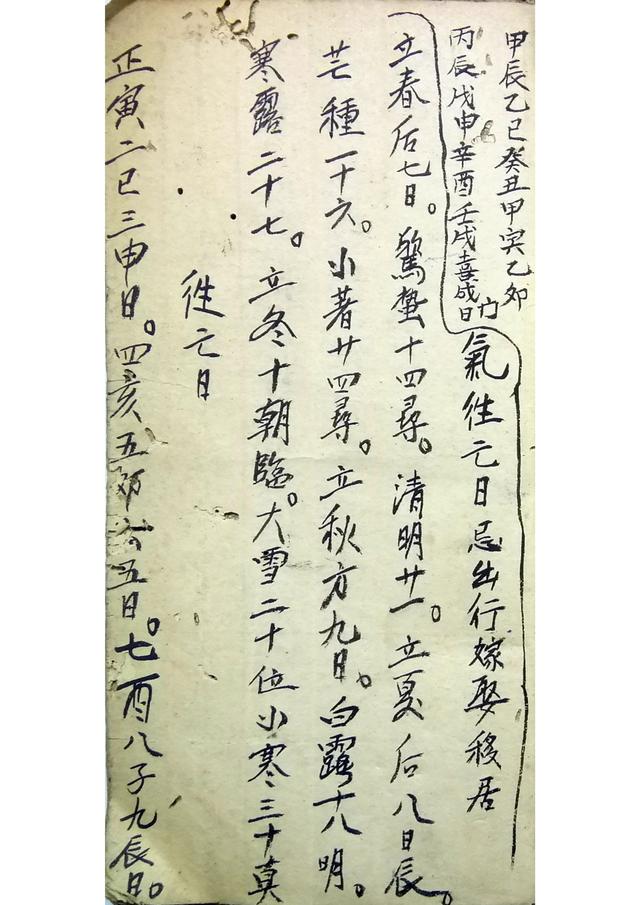 甲辰乙巳癸丑甲寅乙卯
丙辰戊申辛酉壬戌喜成日
氣往亡日忌出行嫁娶移居
立春后七日。驚蟄十四尋。清明廿一。立夏后八日辰。
芒種一十六。小暑廿四尋。立秋方九日。白露十八明。
寒露二十七。立冬十朝臨。大雪二十位小寒三十真
往亡日
正寅二巳三申日。四亥五卯六五日。七酉八子九辰日。